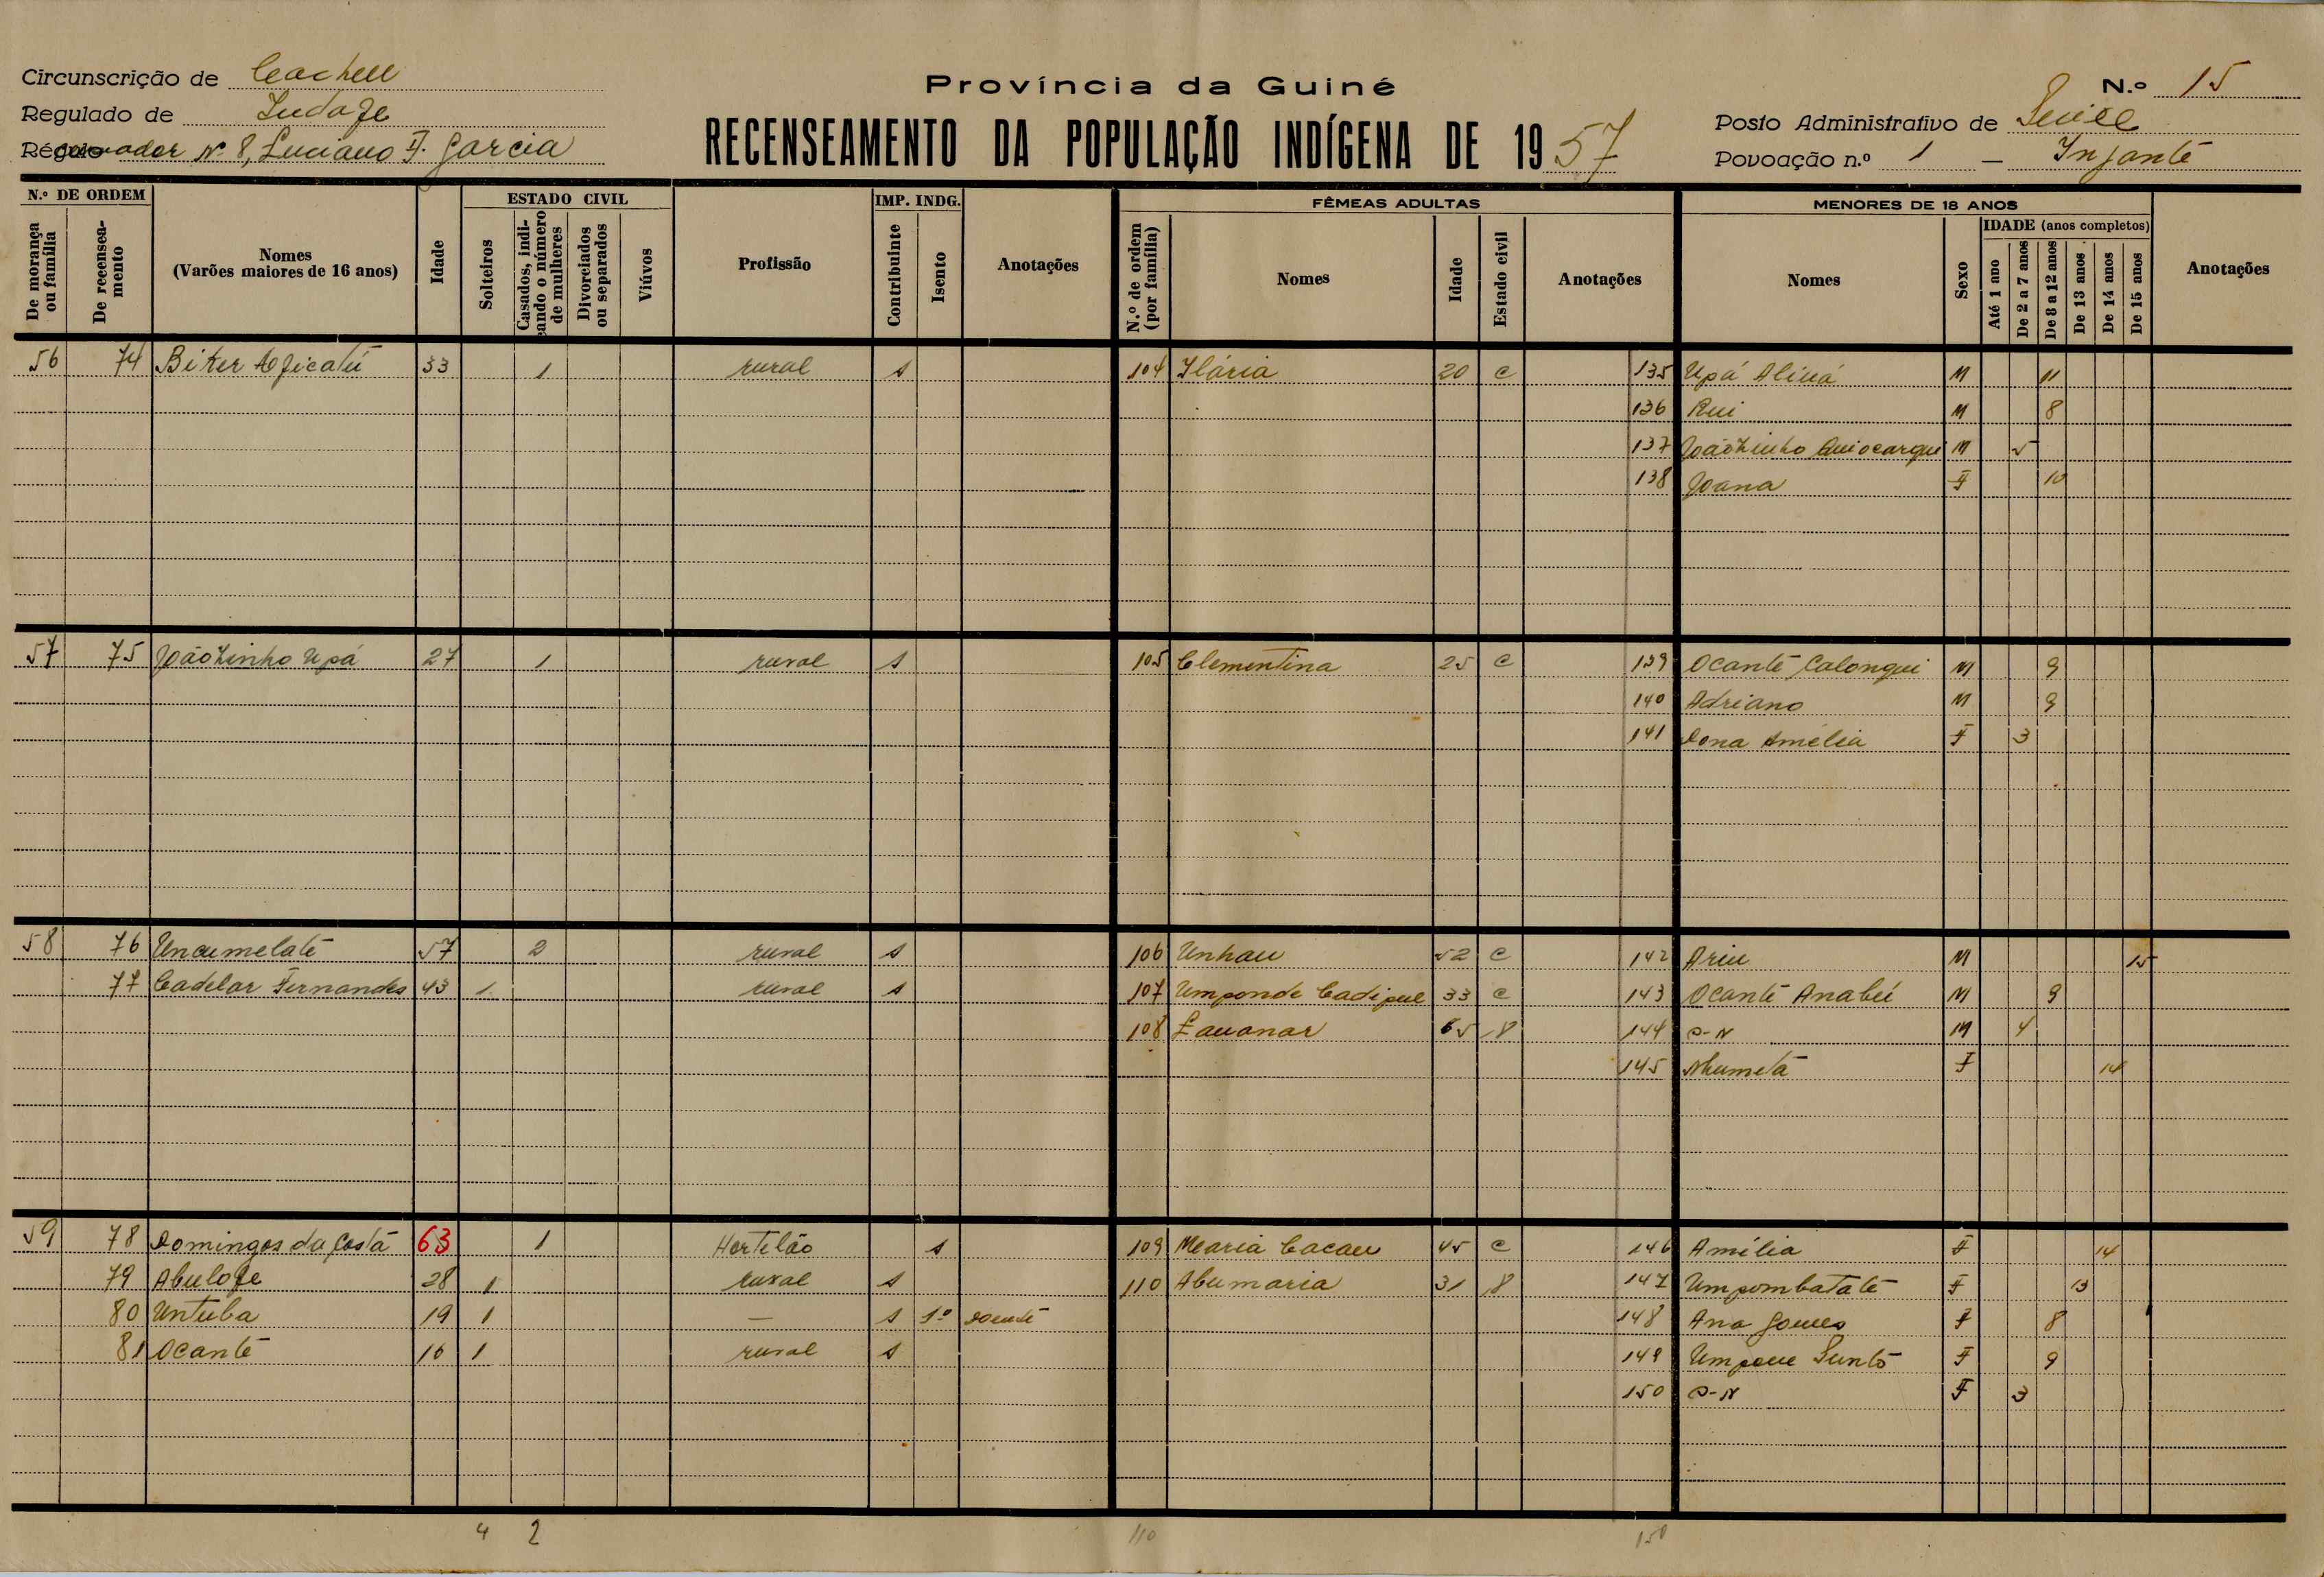 Circunscrição de Cacheu
Regulado de
Régulo N. 8, Luciano F. Garcia
Província da Guiné
RECENSEAMENTO DA POPULAÇÃO INDÍGENA DE 1957
N.º 15
Posto Administrativo de
Povoação n.º 1 - Injante
N.º DE ORDEM
De morança ou família
De recenseamento
Nomes
(Varões maiores de 16 anos)
Idade
ESTADO CIVIL
Solteiros
Casados, indicando o número de mulheres
Divorciados ou separados
Viúvos
Profissão
IMP. INDG.
Contribuinte
Isento
Anotações
FÊMEAS ADULTAS
N.º de ordem (por família)
Nomes
Idade
Estado civil
Anotações
MENORES DE 18 ANOS
Nomes
Sexo
IDADE (anos completos)
Até 1 ano
De 2 a 7 anos
De 8 a 12 anos
De 13 anos
De 14 anos
De 15 anos
Anotações
56 74 Biker 33 1 rural 1 104 Ilária 20 C 135 Upá Aliná M 11
136 Rui M 8
137 Joãozinho M 5
138 Joana F 10
57 75 Joãozinho Upá 27 1 rural 1 105 Clementina 25 C 139 Ocante Calongui M 9
140 Adriano M 9
141 Dona Amélia F 3
58 76 Uncumelate 57 2 rural 1 106 Unhau 52 C 142 Ariu M 15
77 Cadelar Fernandes 43 1 rural 1 107 Umponde Cadipul 33 C 143 Ocante Anabú M 9
108 65 144 S-N M 4
145 Nhumetá F 14
59 78 Domingos da Costa 63 1 Hortelão 1 109 Maria Cacau 45 C 146 Amélia F 14
79 Abulofe 28 1 rural 1 110 Abumaria 31 147 Umpombatate F 13
80 Untuba 19 1 — 1 1º doente 148 Ana Gomes F 8
81 Ocante 16 1 rural 1 149 F 9
150 S-N F 3
4 2 110 150